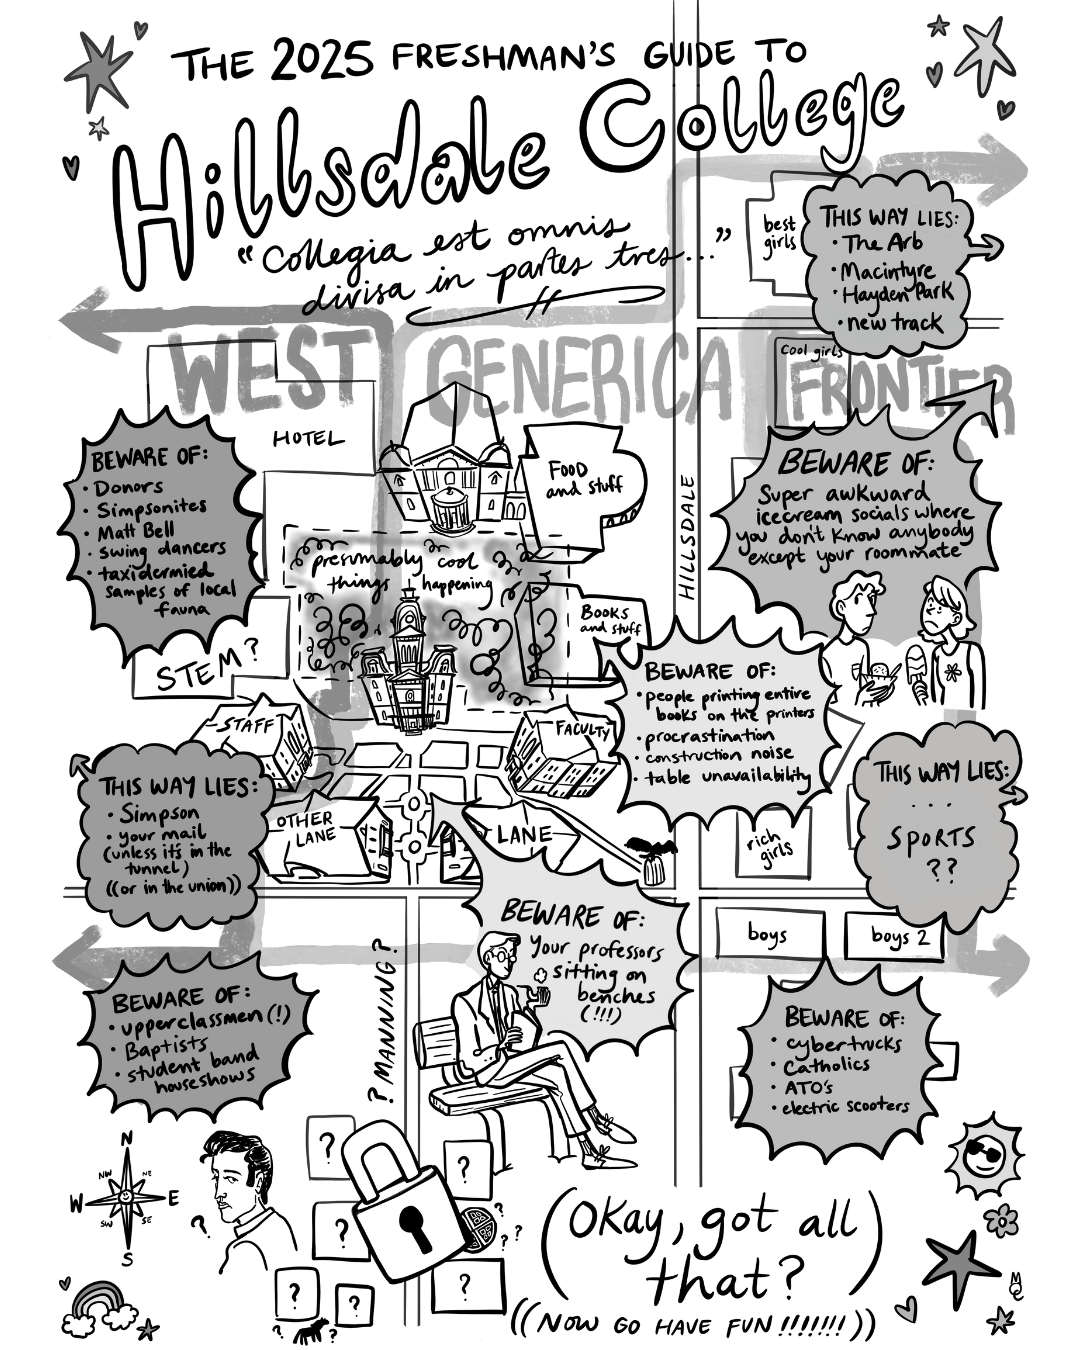 THE 2025 FRESHMAN'S GUIDE TO
Hillsdale College
"Collegia est omnis
divisa in partes tres..."
best
girls
THIS WAY LIES:
• The Arb
• Macintyre
• Hayden Park
• new track
WEST
GENERICA
FRONTIER
cool girls
HOTEL
BEWARE OF:
• Donors
• Simpsonites
• Matt Bell
• swing dancers
• taxidermied
samples of local
fauna
FOOD
and stuff
HILLSDALE
BEWARE OF:
Super awkward
icecream socials where
you don't know anybody
except your roommate
presumably cool
things happening
BOOKS
and stuff
STEM?
STAFF
FACULTY
BEWARE OF:
• people printing entire
books on the printers
• procrastination
• construction noise
• table unavailability
THIS WAY LIES:
• Simpson
• your mail
(unless it's in the
tunnel)
((or in the union))
OTHER
LANE
LANE
rich
girls
THIS WAY LIES:
...
SPORTS
??
BEWARE OF:
Your professors
sitting on
benches
(!!!)
boys
boys 2
? MANNING?
BEWARE OF:
• upperclassmen (!)
• Baptists
• student band
houseshows
BEWARE OF:
• cybertrucks
• Catholics
• ATO's
• electric scooters
N
NW
NE
W
E
SW
SE
S
?
?
?
?
?
?
?
?
?
?
?
?
?
(Okay, got all
that?)
((NOW GO HAVE FUN !!!!!!!))